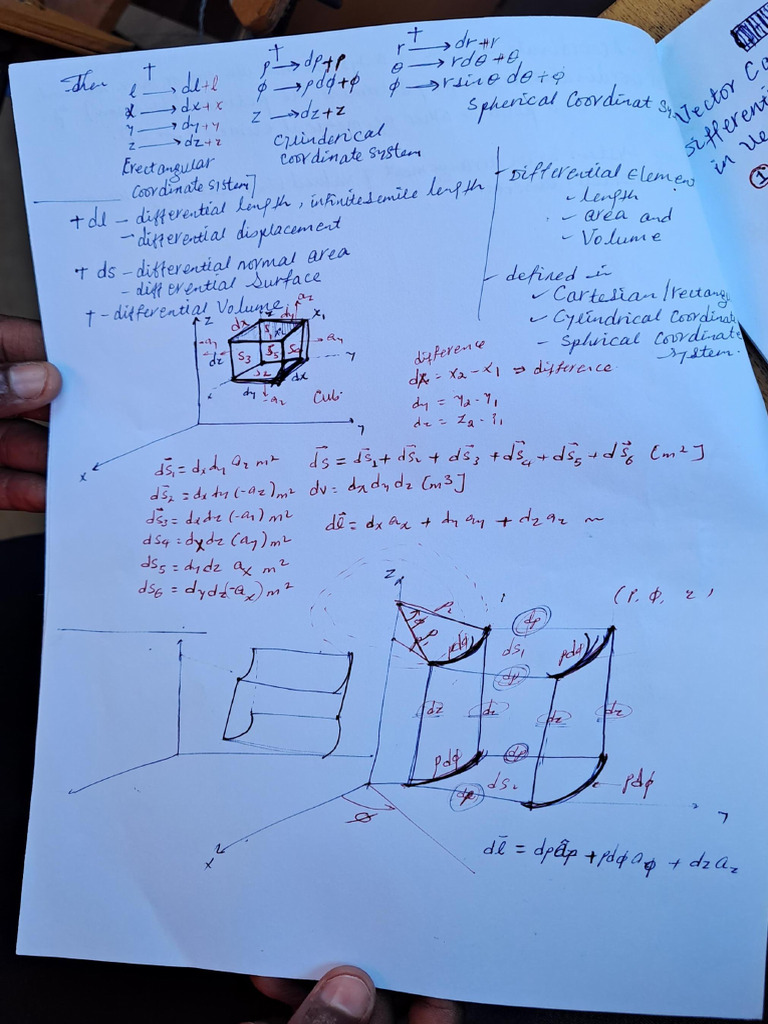 Then
†
l → dl+l
x → dx+x
y → dy+y
z → dz+z
[rectangular
coordinate sistem]
†
ρ → dρ+ρ
φ → ρdφ+φ
z → dz+z
cylinderical
coordinate system
†
r → dr+r
θ → rdθ+θ
φ → rsinθ dθ+φ
Spherical Coordinat Sy
Vector Ca
Differenti
in Ve
①
+ dl - differential length, infinitesemile length
- differential displacement
+ ds - differential normal area
- differential Surface
+ - differential Volume
- Differential Elemen
- length
- area and
- Volume
- defined in
✓ Cartesian/rectang
✓ Cylindrical Coordinat
- Sphrical Coordinate
system.
z
dx
dy
a₂
x₁
-ay
dz
S₃
S₅
S₄
ay
y
S₂
dx
dy
-az
Cubi
x
y
difference
dx = x₂ - x₁ ⇒ difference.
dy = y₂ - y₁
dz = z₂ - z₁
ds₁ = dx dy az m²
ds₂ = dx dy (-az) m²
ds₃ = dx dz (-ay) m²
ds₄ = dx dz (ay) m²
ds₅ = dy dz ax m²
ds₆ = dy dz(-ax) m²
ds = ds₁ + ds₂ + ds₃ + ds₄ + ds₅ + ds₆ [m²]
dv = dx dy dz [m3]
dl = dx ax + dy ay + dz az m
z
(ρ, φ, z)
ρ₂
φ
ρ₁
ρdφ
dρ
ds₁
ρdφ
dρ
dz
dz
dz
dz
ρdφ
dρ
ds₂
ρdφ
dρ
φ
x
y
dl = dρ aρ + ρdφ aφ + dz az